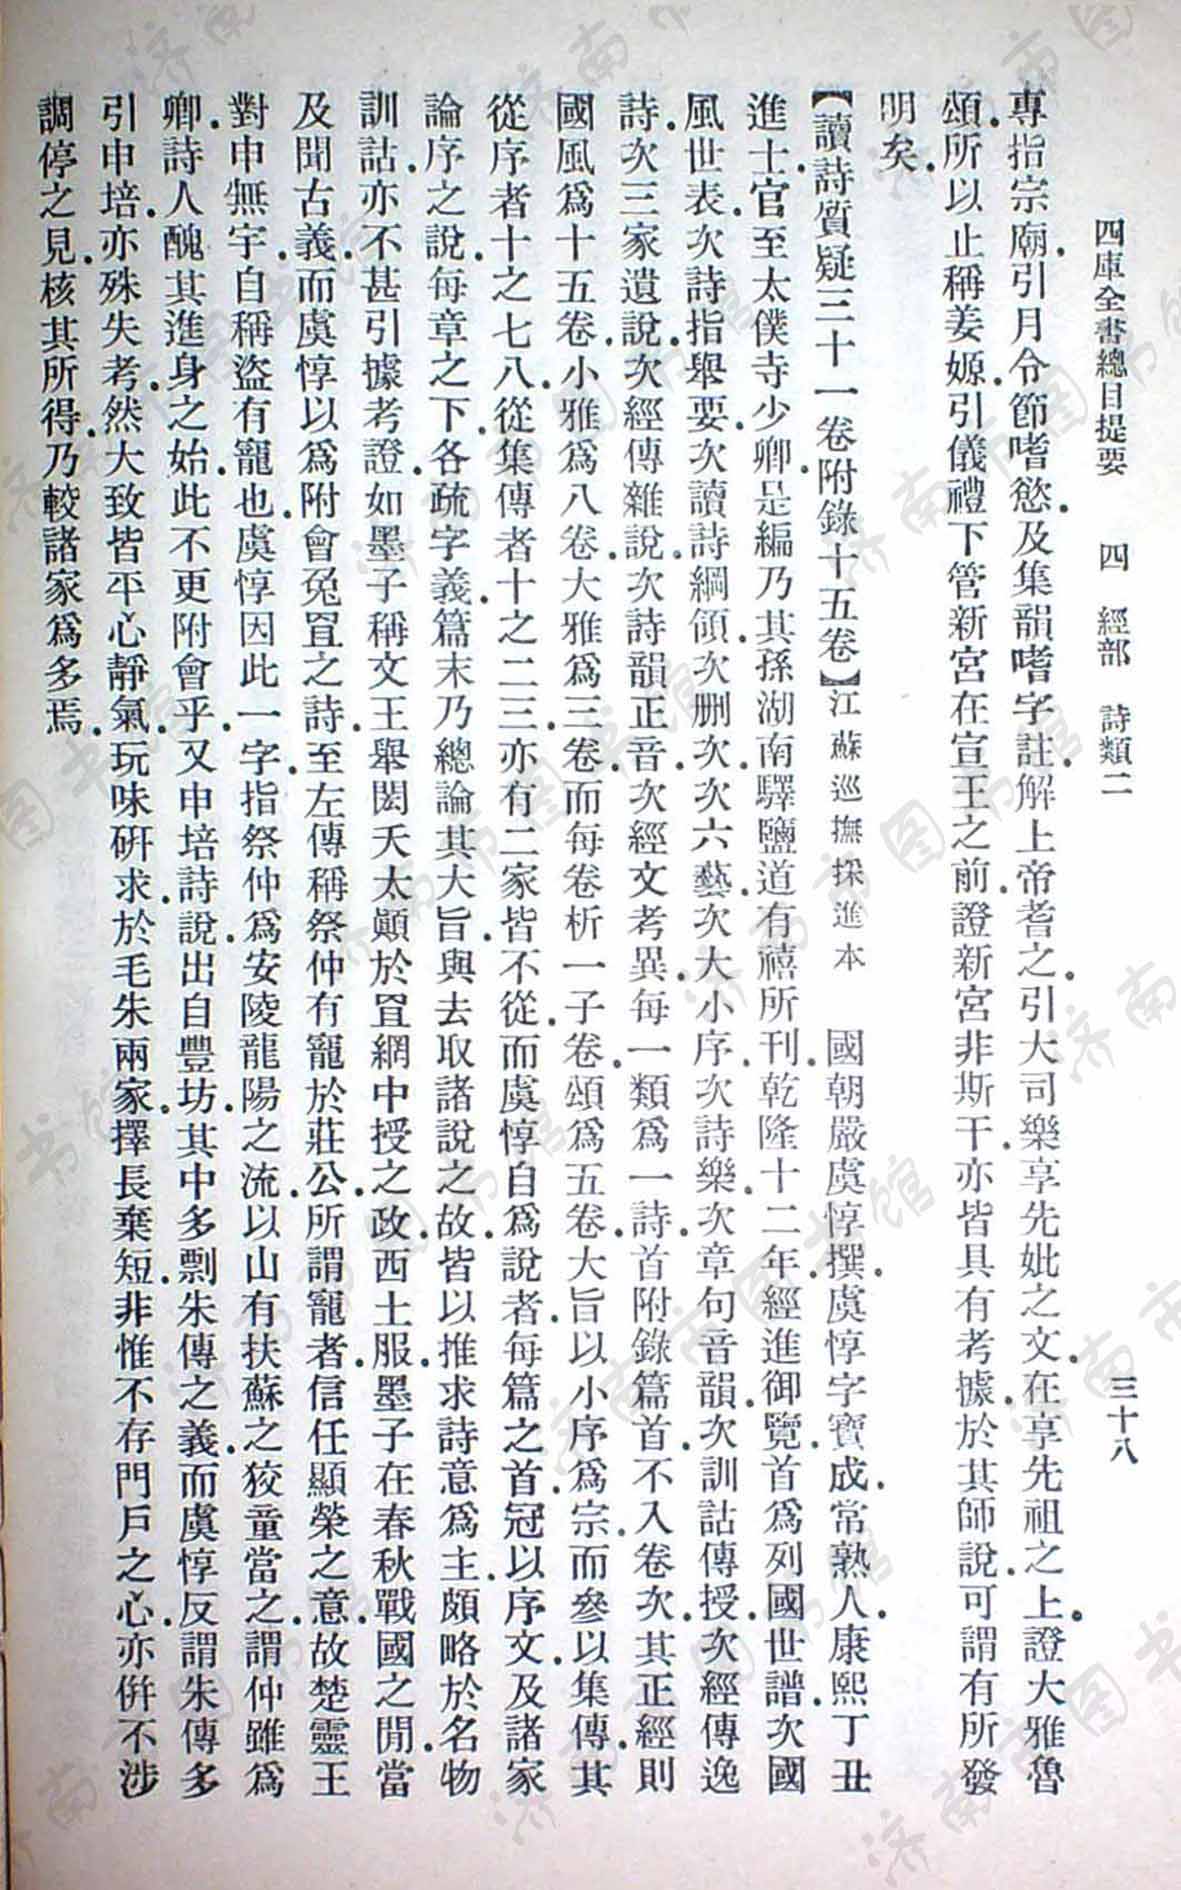 四庫全書總目提要　四　經部　詩類二　三十八
專指宗廟．引月令節嗜慾．及集韻嗜字註．解上帝耆之．引大司樂．享先妣之文．在享先祖之上．證大雅魯
頌．所以止稱姜嫄．引儀禮下管新宮在宣王之前．證新宮非斯干．亦皆具有考據．於其師說．可謂有所發
明矣．
【讀詩質疑三十一卷附錄十五卷】江蘇巡撫採進本　國朝嚴虞惇撰．虞惇字寶成．常熟人．康熙丁丑
進士．官至太僕寺少卿．是編乃其孫湖南驛鹽道有禧所刊．乾隆十二年．經進御覽．首爲列國世譜．次國
風世表．次詩指舉要．次讀詩綱領．次删次．次六藝．次大小序．次詩樂．次章句音韻．次訓詁傳授．次經傳逸
詩．次三家遺說．次經傳雜說．次詩韻正音．次經文考異．每一類爲一詩．首附錄篇首．不入卷次．其正經則
國風爲十五卷．小雅爲八卷．大雅爲三卷．而每卷析一子卷．頌爲五卷．大旨以小序爲宗．而參以集傳．其
從序者十之七八．從集傳者十之二三．亦有二家皆不從．而虞惇自爲說者．每篇之首．冠以序文．及諸家
論序之說．每章之下．各疏字義．篇末乃總論其大旨．與去取諸說之故．皆以推求詩意爲主．頗略於名物
訓詁．亦不甚引據考證．如墨子稱文王舉閎夭太顚於罝網中．授之政．西土服．墨子在春秋戰國之閒．當
及聞古義．而虞惇以爲附會兔罝之詩．至左傳稱祭仲有寵於莊公．所謂寵者．信任顯榮之意．故楚靈王
對申無宇．自稱盜有寵也．虞惇因此一字．指祭仲爲安陵龍陽之流．以山有扶蘇之狡童當之．謂仲雖爲
卿．詩人醜其進身之始．此不更附會乎．又申培詩說．出自豐坊．其中多剽朱傳之義．而虞惇反謂朱傳多
引申培．亦殊失考．然大致皆平心靜氣．玩味研求．於毛朱兩家．擇長棄短．非惟不存門戶之心．亦倂不涉
調停之見．核其所得．乃較諸家爲多焉．